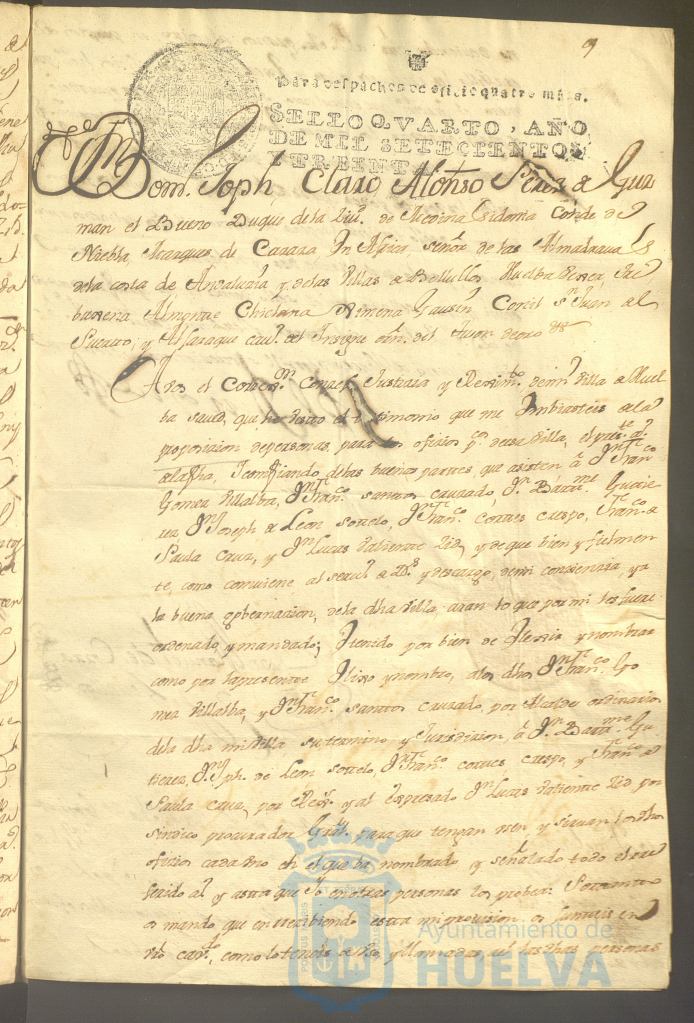 9
Para despachos de oficio quatro mrs.
SELLO QVARTO, AÑO
DE MIL SETECIENTOS
Y TREINT
Dom. Joph, Claro Alonso Perez de Guz
man el Bueno Duque de la Ziu.d de Medina Sidonia Conde de
Niebla, Marques de Cazaza In Africa, señor de las Almadravas
de la costa de Andaluzia y de las Villas de Bollullos Huelba
buxena Almonte Chiclana Ximena Gausin Conil Sn. Juan del
Puerto, y Alfaraque cau.o del Insigne orn. del tuson de oro &
A vos el Conzejo Justizia y Reximto. demi Villa de Huel
ba saved, que he visto el testimonio que me Imbiasteis de la
proposicion de personas para los ofizios pcos. de esa Villa, el preste. año
dela fha, I confiando delas buenas partes, que asisten a Dn. Franco.
Gomez Villalba, Dn. Franco. santos causado, Dn. Barme. Gutie
rez, Dn. Joseph de Leon sotelo, Dn. Franco. cortes crespo, Franco. de
Paula Cruz, y Dn. Lucas Patiente Zid, y de que bien y fielmen
te, como comviene al servo. de Ds. y descargo, demi consienzia, y a
la buena governazion, dela dha villa, aran lo que por mi les fuere
ordenado, y mandado; I tenido por bien de Elexir y nombrar
como por la presente Elixo y nombro, alos dhos Dn. Franco. Go
mez Villalba, y Dn. Franco. santos causado, por Alcaldes ordinarios
dela dha mi Villa su termino y Jurisdizion, a Dn. Barme. Gu
tierez, Dn. Jph. de Leon sotelo, Dn. Franco. cortes crespo, y Franco. de
Paula Cruz, por y al expresado Dn. Lucas Patiente Zid por
sindico procurador Gral. para que tengan usen y sirvan los dhos
ofizios cada uno en el que ba nombrado y señalado todo el re
ferido año y asta que Io en otras personas los probea. Por tanto
os mando que en rezibiendo esta mi provision os junteis en
vro cavdo. como lo teneis de uso, y llamadas, alas dhas personas
Ayuntamiento de
HUELVA